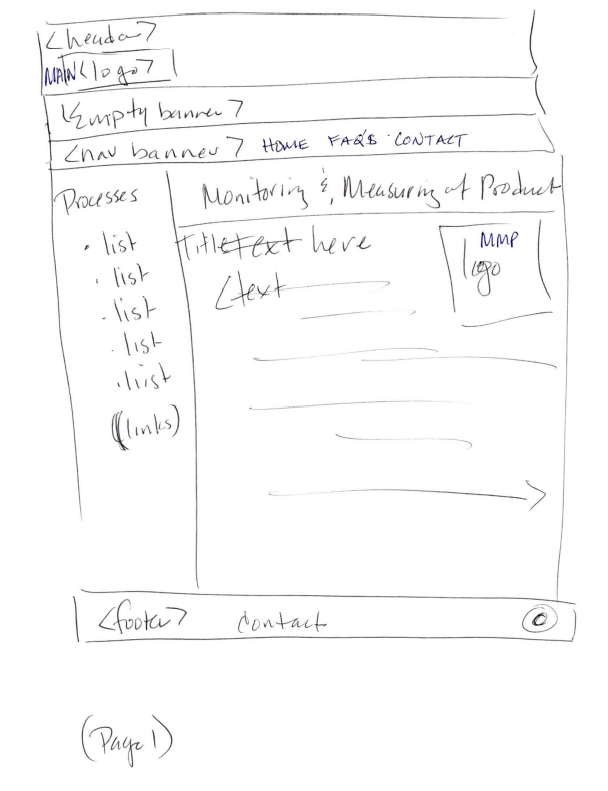 <header>
MAIN <logo>
<Empty banner>
<nav banner> HOME FAQ'S CONTACT
Processes
• list
• list
• list
• list
• list
(links)
Monitoring & Measuring of Product
Title text here
MMP
logo
<text
<footer> Contact
(Page 1)